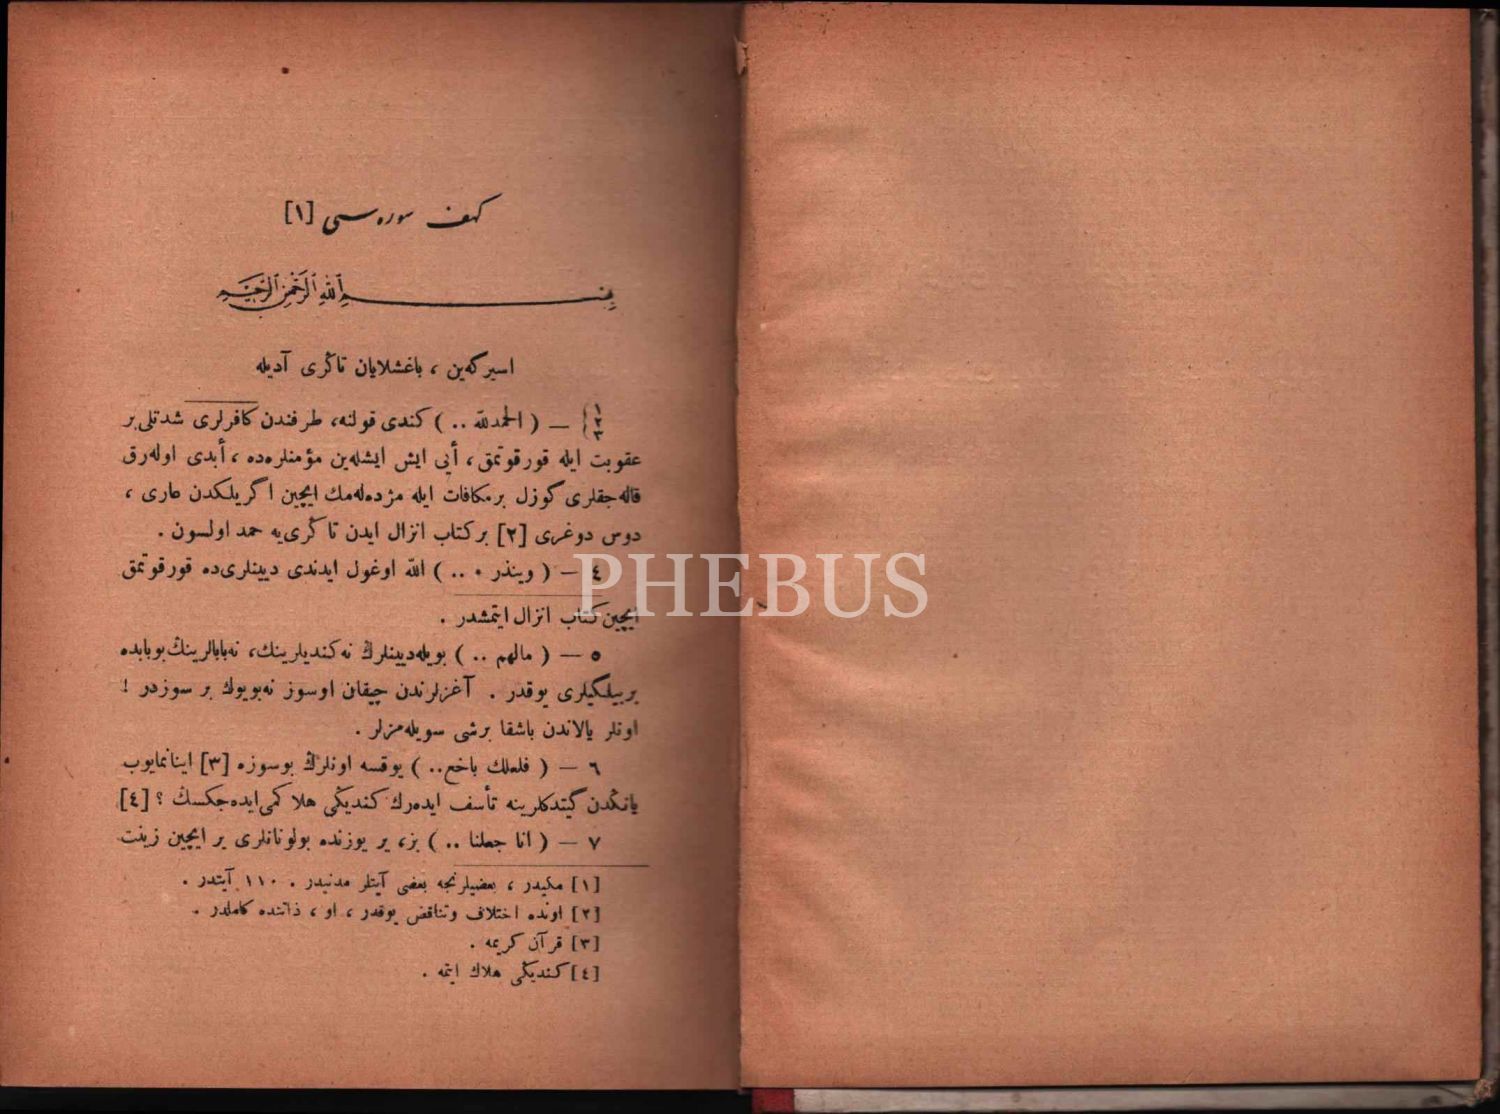 كهف سوره‌سی [١]
بسم ٱللّٰه ٱلرَّحْمٰن ٱلرَّحِيم
اسیرگه‌ین ، باغشلایان تاڭری آدیله
١ ٢ ٣ } — ( الحمدللّه .. ) كندی قولنه، طرفندن كافرلری شدتلی بر
عقوبت ایله قورقوتمق ، أیی ایش ایشله‌ین مؤمنلره‌ده ، أبدی اوله‌رق
قاله‌جقلری گوزل بر مكافات ایله مژده‌له‌مك ایچین اگریلكدن عاری ،
دوس دوغری [٢] بر كتاب انزال ایدن تاڭری‌یه حمد اولسون .
٤ — ( وینذر ٠ .. ) اللّه اوغول ایدندی دیینلری‌ده قورقوتمق
ایچین كتاب انزال ایتمشدر .
٥ — ( مالهم .. ) بویله‌دیینلرڭ نه‌كندیلرینك، نه‌بابالرینڭ بوبابده
بر بیلگیلری یوقدر . آغزلرندن چیقان اوسوز نه‌بویوك بر سوزدر !
اونلر یالاندن باشقا برشی سویله‌مزلر .
٦ — ( فلعلك باخع.. ) یوقسه اونلرڭ بوسوزه [٣] اینانمایوب
یانڭدن گیتدكلرینه تأسف ایده‌رك كندیڭی هلاك‌می‌ایده‌جكسڭ ؟ [٤]
٧ — ( انا جعلنا .. ) بز، یر یوزنده بولونانلری یر ایچین زینت
[١] مكیدر ، بعضیلرنجه بعضی آیتلر مدنیدر . ١١٠ آیتدر .
[٢] اونده اختلاف وتناقض یوقدر ، او ، ذاتنده كاملدر .
[٣] قرآن كریمه .
[٤] كندیڭی هلاك ایتمه .
PHEBUS